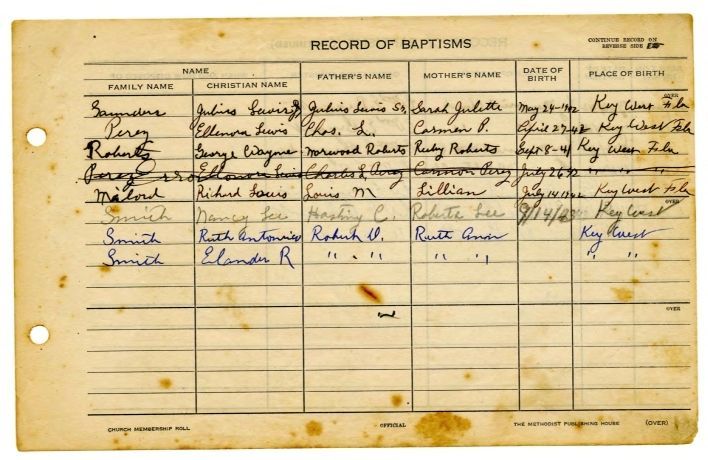 RECORD OF BAPTISMS
CONTINUE RECORD ON
REVERSE SIDE
NAME FATHER'S NAME MOTHER'S NAME DATE OF BIRTH PLACE OF BIRTH
FAMILY NAME CHRISTIAN NAME
OVER
Saunders Julius Lewis Jr. Julius Lewis Sr. Sarah Juletta May 24-1942 Key West Fla
Perez Ellenora Lewis Chas. L. Carmen P. April 27-42 Key West Fla
Roberts George Wayne Norwood Roberts Ruby Roberts Sept 8-41 Key West Fla
Perez Charles L Perez Carmon Perez July 26 " " "
Malord Richard Louis Louis M Lillian July 14 1942 Key West Fla
OVER
Smith Nancy Lee C. Roberta Lee Key West
Smith Ruth Robert D. Ruth Ann Key West
Smith Elander R " " " " " " "
OVER
CHURCH MEMBERSHIP ROLL OFFICIAL THE METHODIST PUBLISHING HOUSE (OVER)